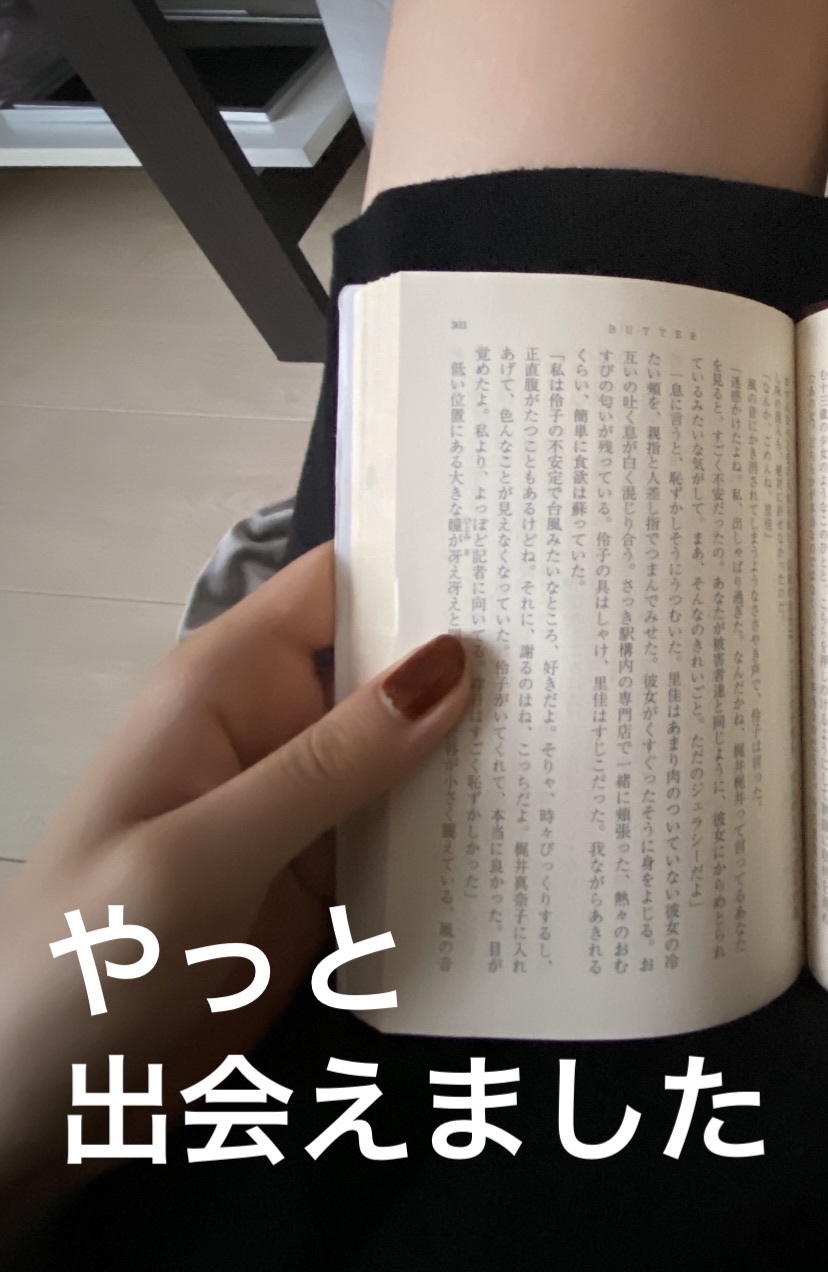 BUTTER
303
「なんか、ごめんね、里佳」
風の音にかき消されてしまうようなささやき声で、伶子は言った。
「迷惑かけたよね。私、出しゃばり過ぎた。なんだかね、梶井梶井って言ってるあなた
を見ると、すごく不安だったの。あなたが被害者達と同じように、彼女にからめとられ
ているみたいな気がして。まあ、そんなのきれいごと。ただのジェラシーだよ」
一息に言うと、恥ずかしそうにうつむいた。里佳はあまり肉のついていない彼女の冷
たい頬を、親指と人差し指でつまんでみせた。彼女がくすぐったそうに身をよじる。お
互いの吐く息が白く混じり合う。さっき駅構内の専門店で一緒に頬張った、熱々のおむ
すびの匂いが残っている。伶子の具はしゃけ、里佳はすじこだった。我ながらあきれる
くらい、簡単に食欲は蘇っていた。
「私は伶子の不安定で台風みたいなところ、好きだよ。そりゃ、時々びっくりするし、
正直腹がたつこともあるけどね。それに、謝るのはね、こっちだよ。梶井真奈子に入れ
あげて、色んなことが見えなくなっていた。伶子がいてくれて、本当に良かった。目が
覚めたよ。私より、よっぽど記者に向いてる。はすごく恥ずかしかった」
低い位置にある大きな瞳が冴え冴えとが小さく震えている。風の音
やっと
出会えました